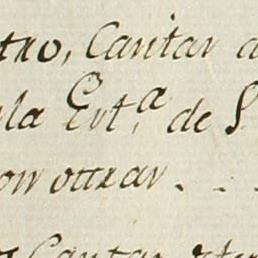 tro, Cantar a
la Ert.ª de S
on ottrar. . .
Cantar